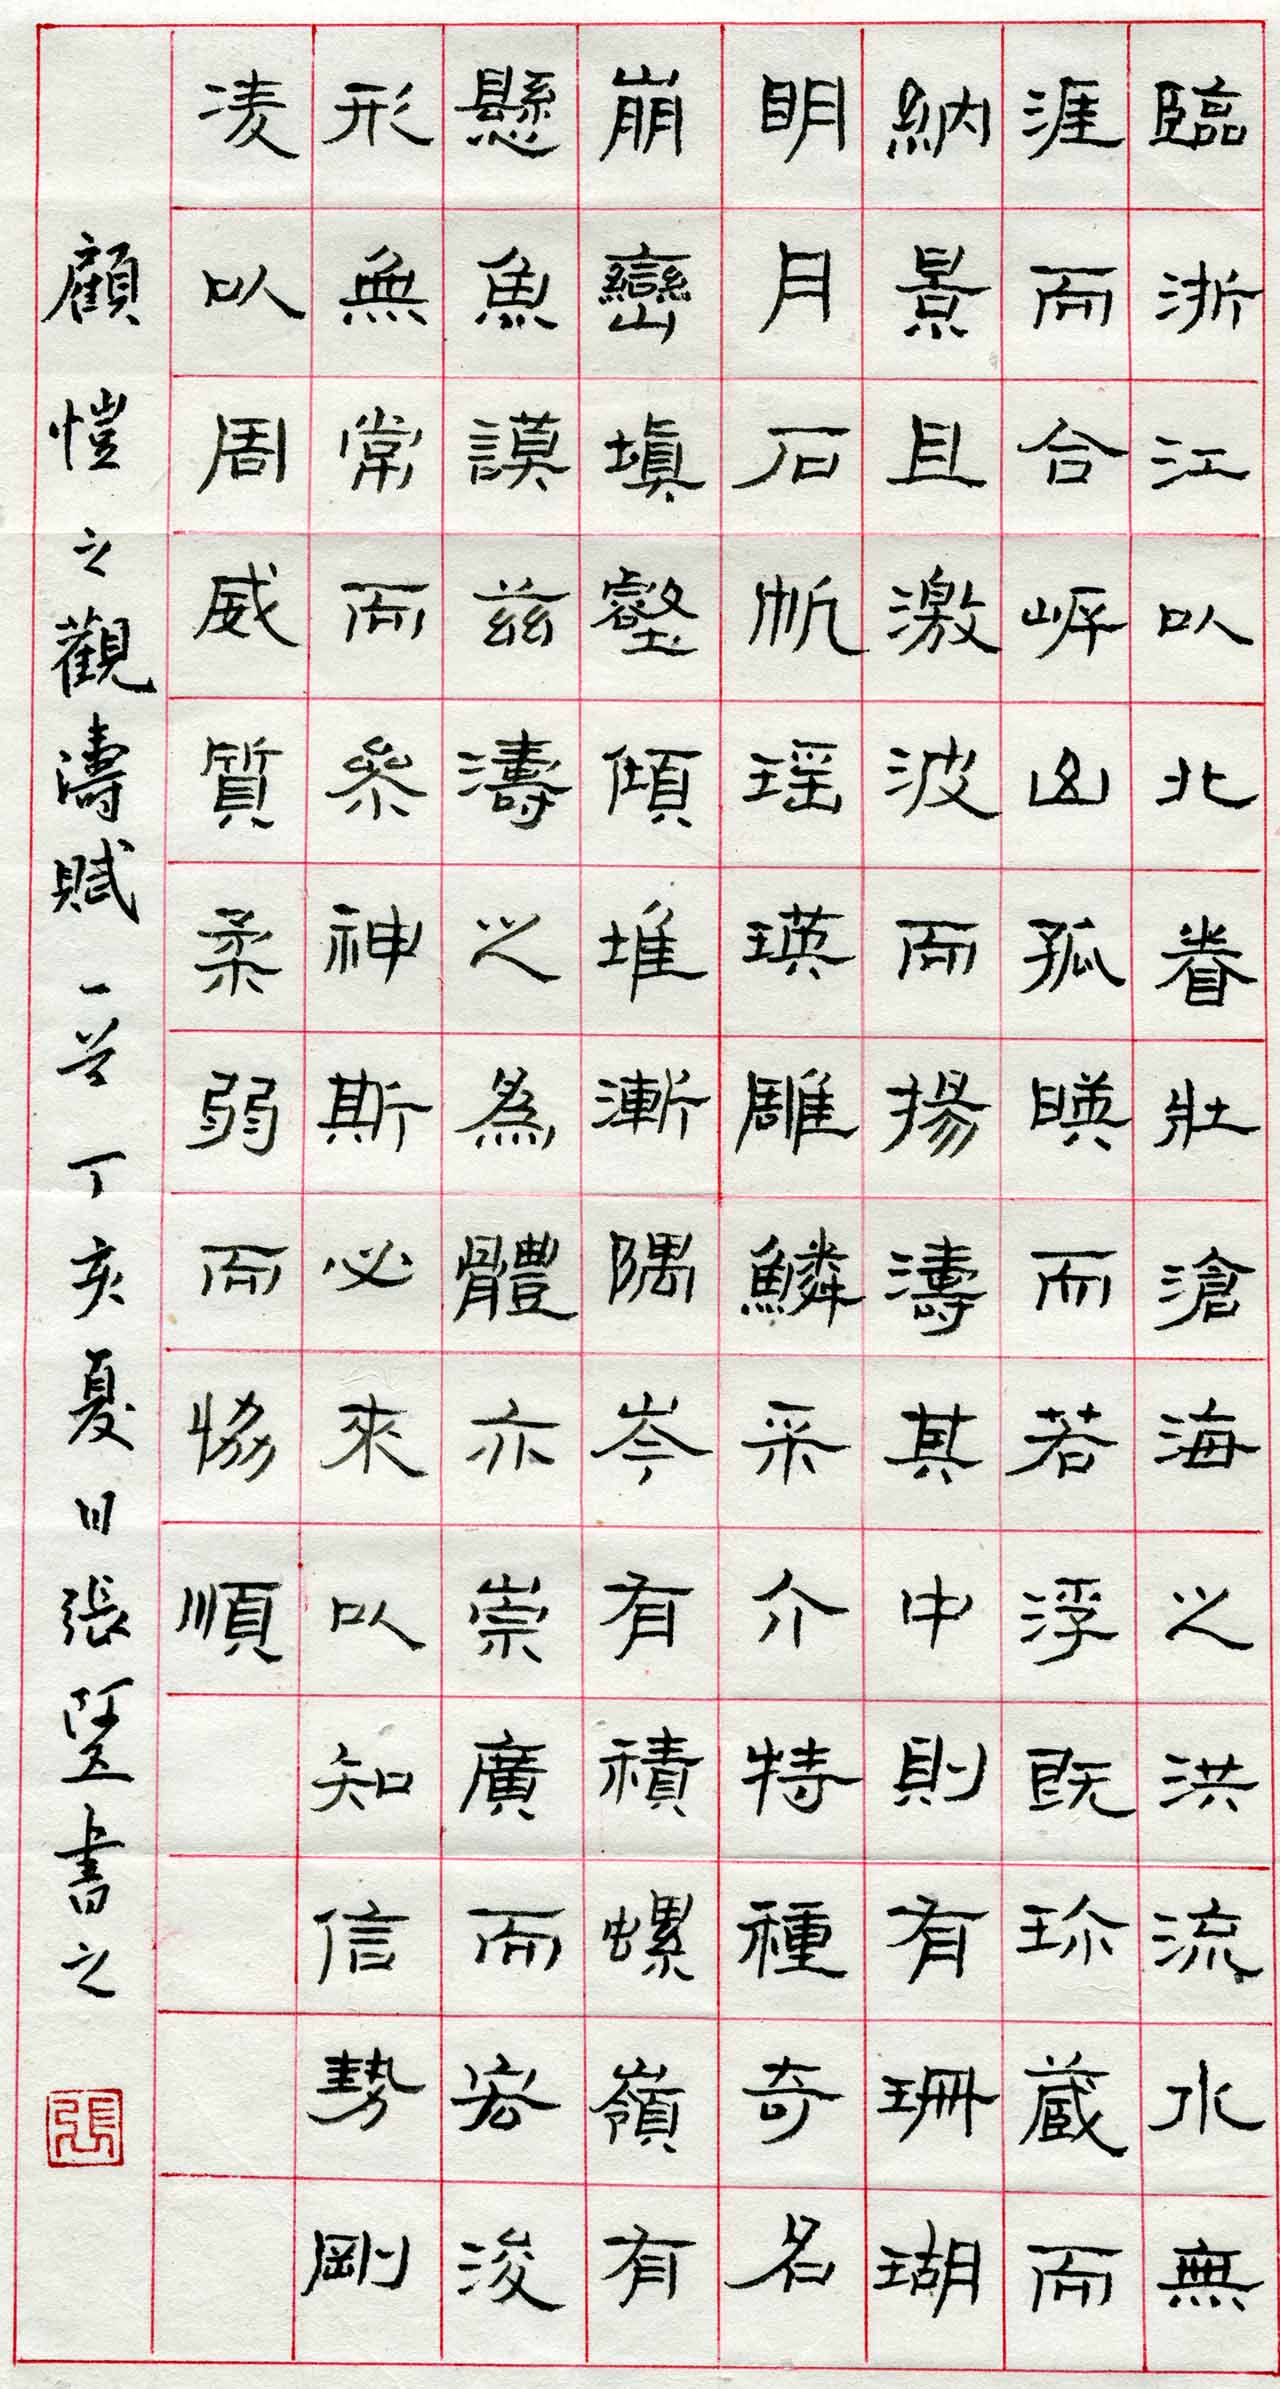 臨浙江以北眷壯滄海之洪流水無
涯而合岼山孤暎而若浮既珎蔵而
納景且激波而揚濤其中則有珊瑚
明月石帆瑶瑛雕鱗采介特種奇名
崩巒填壑傾堆漸隅岑有積螺嶺有
懸魚謨兹濤之為體亦崇廣而宏浚
形無常而参神斯必來以知信勢剛
凌以周威質柔弱而協順
顧愷之觀濤賦一首丁亥夏日張堅書之
張